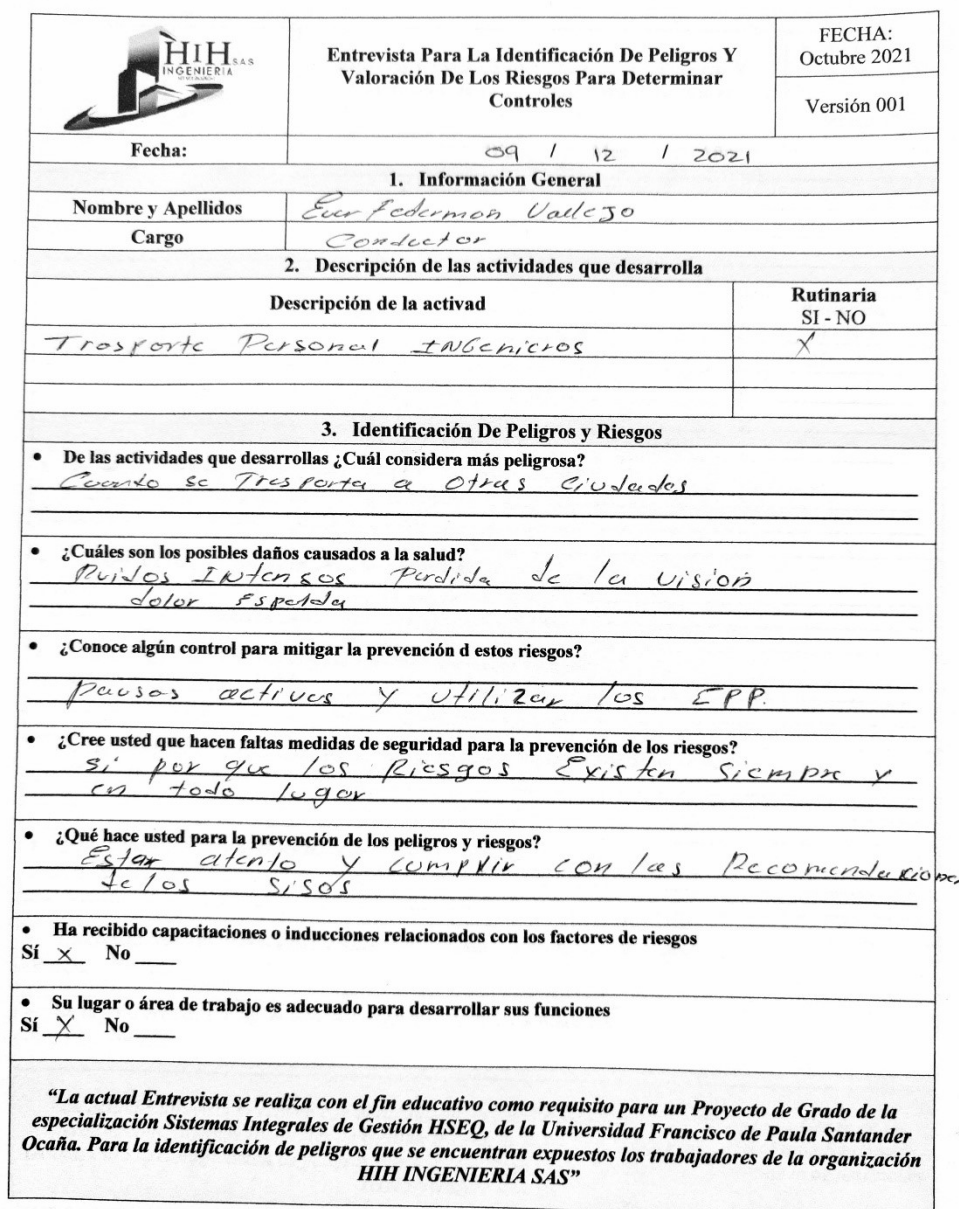 HIH S.A.S
INGENIERIA
Entrevista Para La Identificación De Peligros Y
Valoración De Los Riesgos Para Determinar
Controles
FECHA:
Octubre 2021
Versión 001
Fecha: 09 / 12 / 2021
1. Información General
Nombre y Apellidos Ever Federmon Vallejo
Cargo Conductor
2. Descripción de las actividades que desarrolla
Descripción de la activad
Rutinaria
SI - NO
Trosporte Personal INGenieros X
3. Identificación De Peligros y Riesgos
• De las actividades que desarrollas ¿Cuál considera más peligrosa?
Cuando se Tresporta a Otras Ciudades
• ¿Cuáles son los posibles daños causados a la salud?
Ruidos Intensos Perdida de la vision
dolor Espalda
• ¿Conoce algún control para mitigar la prevención d estos riesgos?
pausas activas y utilizar los EPP.
• ¿Cree usted que hacen faltas medidas de seguridad para la prevención de los riesgos?
si por que los Riesgos Existen siempre y
en todo lugar
• ¿Qué hace usted para la prevención de los peligros y riesgos?
Estar atento y cumplir con las Recomendaciones
de los sisos
• Ha recibido capacitaciones o inducciones relacionados con los factores de riesgo
Sí X No ____
• Su lugar o área de trabajo es adecuado para desarrollar sus funciones
Sí X No ____
“La actual Entrevista se realiza con el fin educativo como requisito para un Proyecto de Grado de la
especialización Sistemas Integrales de Gestión HSEQ, de la Universidad Francisco de Paula Santander
Ocaña. Para la identificación de peligros que se encuentran expuestos los trabajadores de la organización
HIH INGENIERIA SAS”